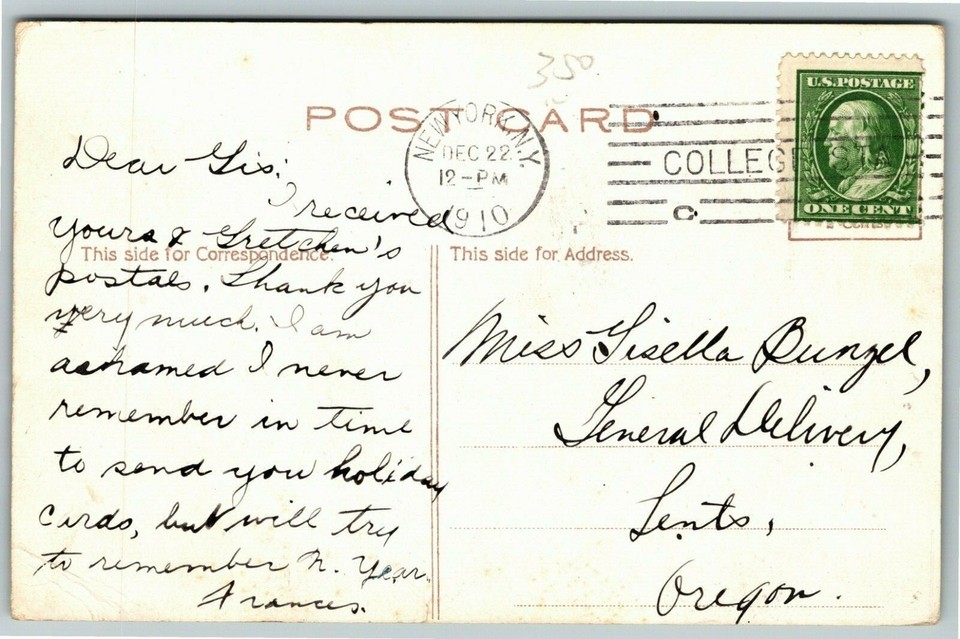 350
POST CARD
NEW YORK, N.Y.
DEC 22
12-PM
1910
COLLEGE STA.
U.S. POSTAGE
ONE CENT
This side for Correspondence.
This side for Address.
Dear Gis:
I received
yours & Gretchen's
postals. Thank you
very much. I am
ashamed I never
remember in time
to send you holiday
cards, but will try
to remember N. Year.
Frances.
Miss Gisella Bunzel,
General Delivery,
Lents,
Oregon.